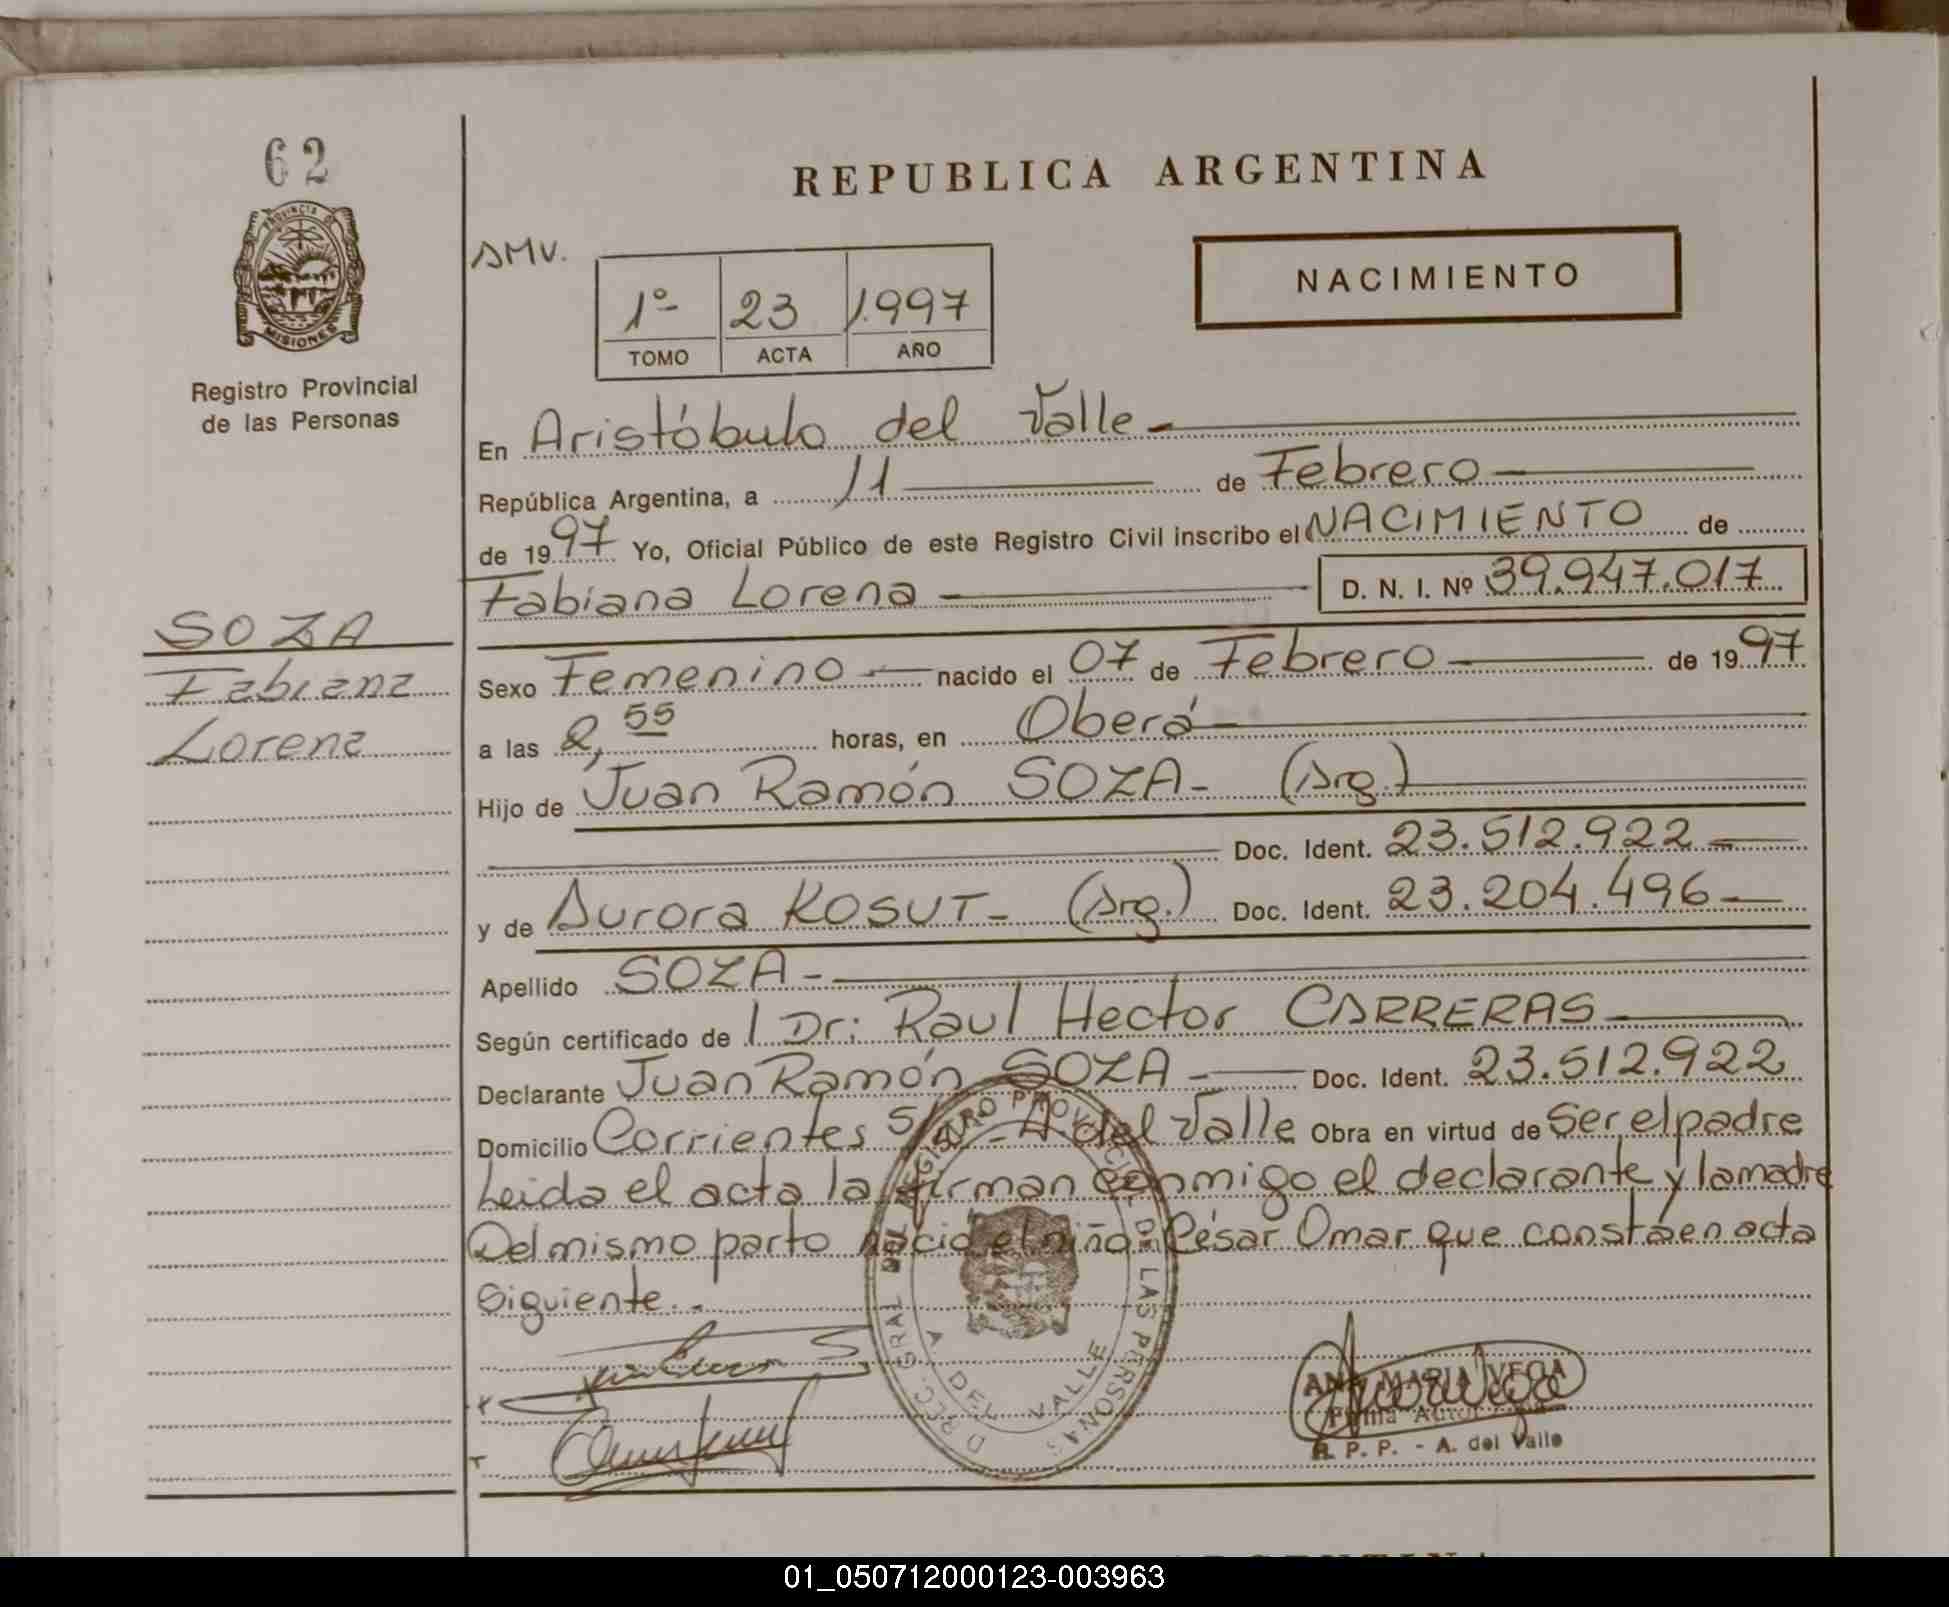 62
PROVINCIA DE
MISIONES
Registro Provincial
de las Personas
SOZA
Fabiana
Lorena
REPUBLICA ARGENTINA
AMV.
1º 23 1.997
TOMO ACTA AÑO
NACIMIENTO
En Aristóbulo del Valle
República Argentina, a 11 de Febrero
de 1997 Yo, Oficial Público de este Registro Civil inscribo el NACIMIENTO de
Fabiana Lorena D. N. I. Nº 39.947.017
Sexo Femenino nacido el 07 de Febrero de 1997
a las 2,55 horas, en Oberá
Hijo de Juan Ramón SOZA - (Arg.)
Doc. Ident. 23.512.922
y de Aurora KOSUT - (Arg.) Doc. Ident. 23.204.496
Apellido SOZA -
Según certificado de l Dr: Raul Hector CARRERAS
Declarante Juan Ramón SOZA - Doc. Ident. 23.512.922
Domicilio Corrientes - A del Valle Obra en virtud de Ser el padre
Leida el acta la firman conmigo el declarante y la madre
Del mismo parto nació el niño: César Omar que consta en acta
Siguiente.
DIREC. GRAL DEL REGISTRO PROVINCIAL DE LAS PERSONAS
A DEL VALLE
ANA MARIA VEGA
Firma Autorizada
R. P. P. - A. del Valle
01_050712000123-003963